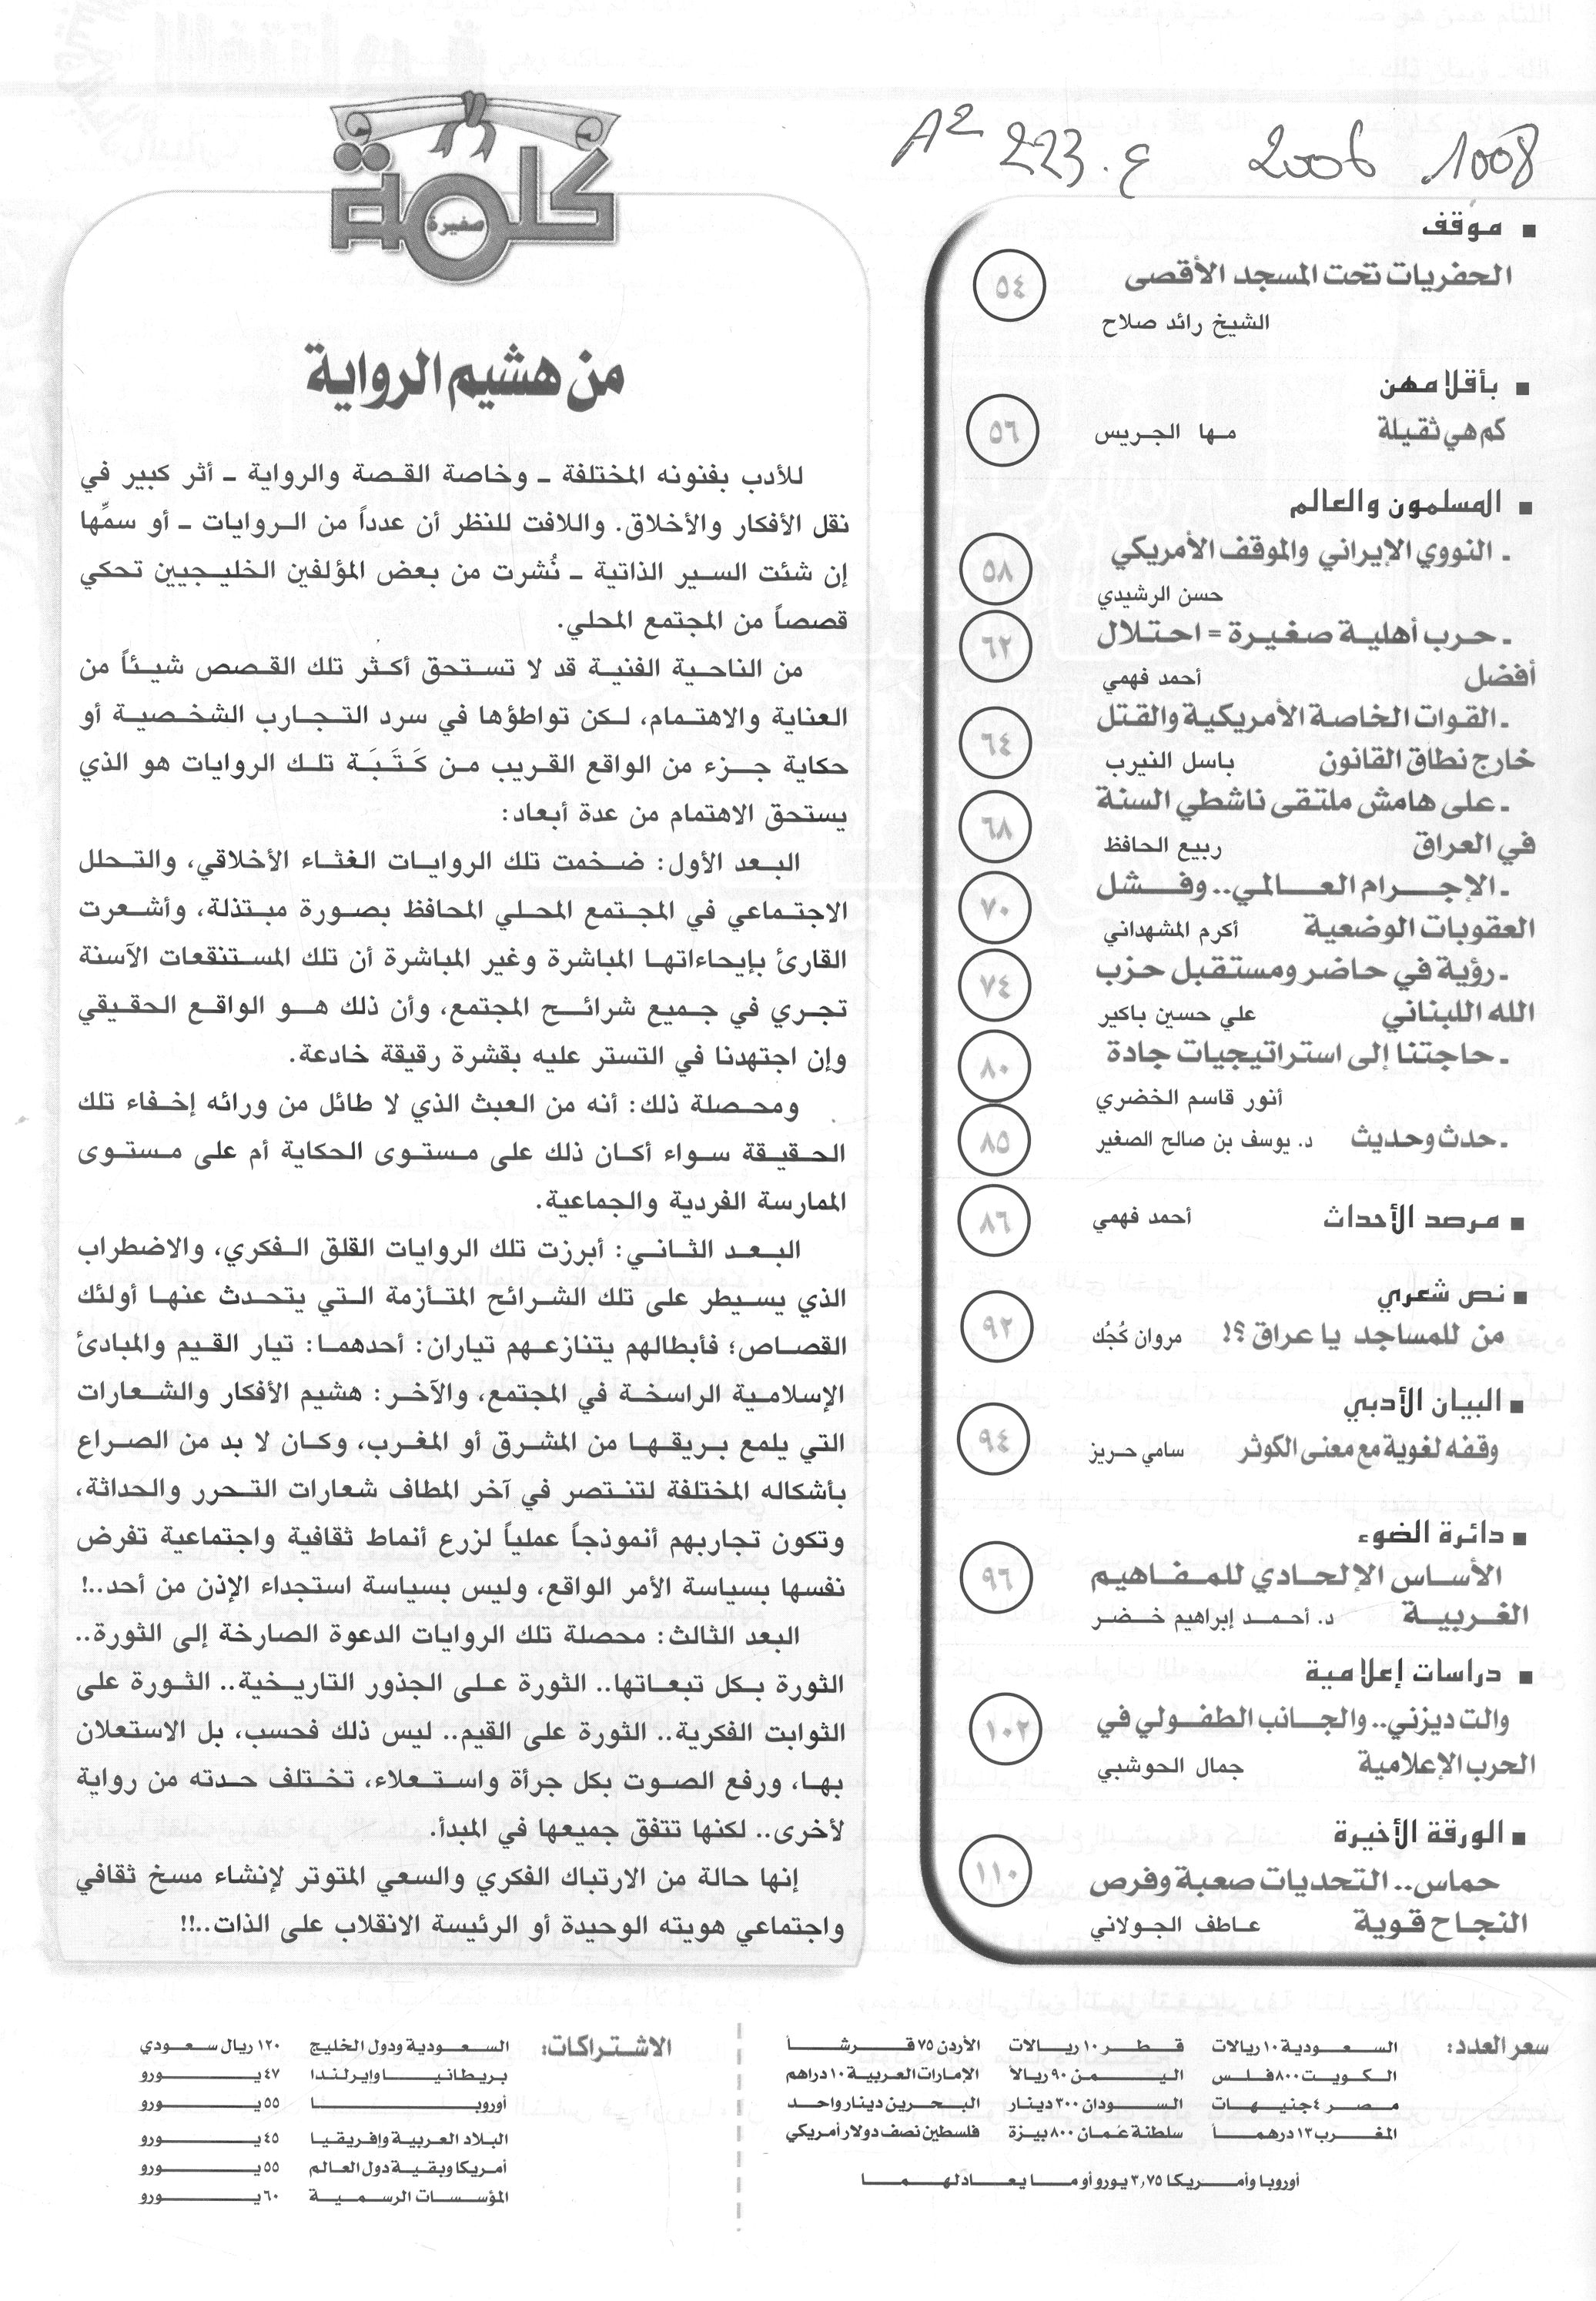 A2 223.ع 2006 1008
▪ موقف
الحفريات تحت المسجد الأقصى ٥٤
الشيخ رائد صلاح
▪ بأقلامهن
كم هي ثقيلة مها الجريس ٥٦
▪ المسلمون والعالم
ـ النووي الإيراني والموقف الأمريكي ٥٨
حسن الرشيدي
ـ حرب أهلية صغيرة = احتلال ٦٢
أفضل أحمد فهمي
ـ القوات الخاصة الأمريكية والقتل ٦٤
خارج نطاق القانون باسل النيرب
ـ على هامش ملتقى ناشطي السنة ٦٨
في العراق ربيع الحافظ
ـ الإجرام العالمي.. وفشل ٧٠
العقوبات الوضعية أكرم المشهداني
ـ رؤية في حاضر ومستقبل حزب ٧٤
الله اللبناني علي حسين باكير
ـ حاجتنا إلى استراتيجيات جادة ٨٠
أنور قاسم الخضري
ـ حدث وحديث د. يوسف بن صالح الصغير ٨٥
▪ مرصد الأحداث أحمد فهمي ٨٦
▪ نص شعري
من للمساجد يا عراق ؟! مروان كُجُك ٩٢
▪ البيان الأدبي
وقفه لغوية مع معنى الكوثر سامي حريز ٩٤
▪ دائرة الضوء
الأساس الإلحادي للمفاهيم ٩٦
الغربية د. أحمد إبراهيم خضر
▪ دراسات إعلامية
والت ديزني.. والجانب الطفولي في ١٠٢
الحرب الإعلامية جمال الحوشبي
▪ الورقة الأخيرة
حماس.. التحديات صعبة وفرص ١١٠
النجاح قوية عاطف الجولاني
كلمة
صغيرة
من هشيم الرواية
للأدب بفنونه المختلفة ـ وخاصة القصة والرواية ـ أثر كبير في
نقل الأفكار والأخلاق. واللافت للنظر أن عدداً من الروايات ـ أو سمِّها
إن شئت السير الذاتية ـ نُشرت من بعض المؤلفين الخليجيين تحكي
قصصاً من المجتمع المحلي.
من الناحية الفنية قد لا تستحق أكثر تلك القصص شيئاً من
العناية والاهتمام، لكن تواطؤها في سرد التجارب الشخصية أو
حكاية جزء من الواقع القريب من كَتَبَة تلك الروايات هو الذي
يستحق الاهتمام من عدة أبعاد:
البعد الأول: ضخمت تلك الروايات الغثاء الأخلاقي، والتحلل
الاجتماعي في المجتمع المحلي المحافظ بصورة مبتذلة، وأشعرت
القارئ بإيحاءاتها المباشرة وغير المباشرة أن تلك المستنقعات الآسنة
تجري في جميع شرائح المجتمع، وأن ذلك هو الواقع الحقيقي
وإن اجتهدنا في التستر عليه بقشرة رقيقة خادعة.
ومحصلة ذلك: أنه من العبث الذي لا طائل من ورائه إخفاء تلك
الحقيقة سواء أكان ذلك على مستوى الحكاية أم على مستوى
الممارسة الفردية والجماعية.
البعد الثاني: أبرزت تلك الروايات القلق الفكري، والاضطراب
الذي يسيطر على تلك الشرائح المتأزمة التي يتحدث عنها أولئك
القصاص؛ فأبطالهم يتنازعهم تياران: أحدهما: تيار القيم والمبادئ
الإسلامية الراسخة في المجتمع، والآخر: هشيم الأفكار والشعارات
التي يلمع بريقها من المشرق أو المغرب، وكان لا بد من الصراع
بأشكاله المختلفة لتنتصر في آخر المطاف شعارات التحرر والحداثة،
وتكون تجاربهم أنموذجاً عملياً لزرع أنماط ثقافية واجتماعية تفرض
نفسها بسياسة الأمر الواقع، وليس بسياسة استجداء الإذن من أحد..!
البعد الثالث: محصلة تلك الروايات الدعوة الصارخة إلى الثورة..
الثورة بكل تبعاتها.. الثورة على الجذور التاريخية.. الثورة على
الثوابت الفكرية.. الثورة على القيم.. ليس ذلك فحسب، بل الاستعلان
بها، ورفع الصوت بكل جرأة واستعلاء، تختلف حدته من رواية
لأخرى.. لكنها تتفق جميعها في المبدأ.
إنها حالة من الارتباك الفكري والسعي المتوتر لإنشاء مسخ ثقافي
واجتماعي هويته الوحيدة أو الرئيسة الانقلاب على الذات..!!
سعر العدد: السعودية ١٠ ريالات قطر ١٠ ريالات الأردن ٧٥ قرشاً
الكويت ٨٠٠ فلس اليمن ٩٠ ريالاً الإمارات العربية ١٠ دراهم
مصر ٤ جنيهات السودان ٣٠٠ دينار البحرين دينار واحد
المغرب ١٣ درهماً سلطنة عُمان ٨٠٠ بيزة فلسطين نصف دولار أمريكي
أوروبا وأمريكا ٣,٧٥ يورو أو ما يعادلهما
الاشتراكات: السعودية ودول الخليج ١٢٠ ريال سعودي
بريطانيا وإيرلندا ٤٧ يورو
أوروبا ٥٥ يورو
البلاد العربية وإفريقيا ٤٥ يورو
أمريكا وبقية دول العالم ٥٥ يورو
المؤسسات الرسمية ٦٠ يورو